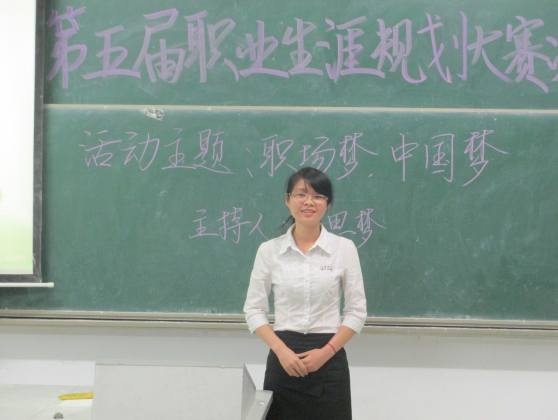 第五届职业生涯规划大赛
活动主题：职场梦、中国梦
主持人 思梦